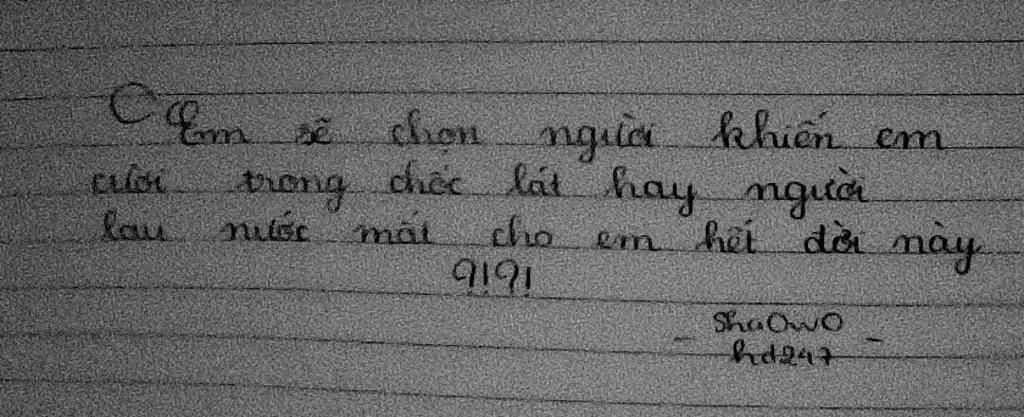 Em sẽ chọn người khiến em
cười trong chốc lát hay người
lau nước mắt cho em hết đời này
?!?!
- ShaOwO -
hd247